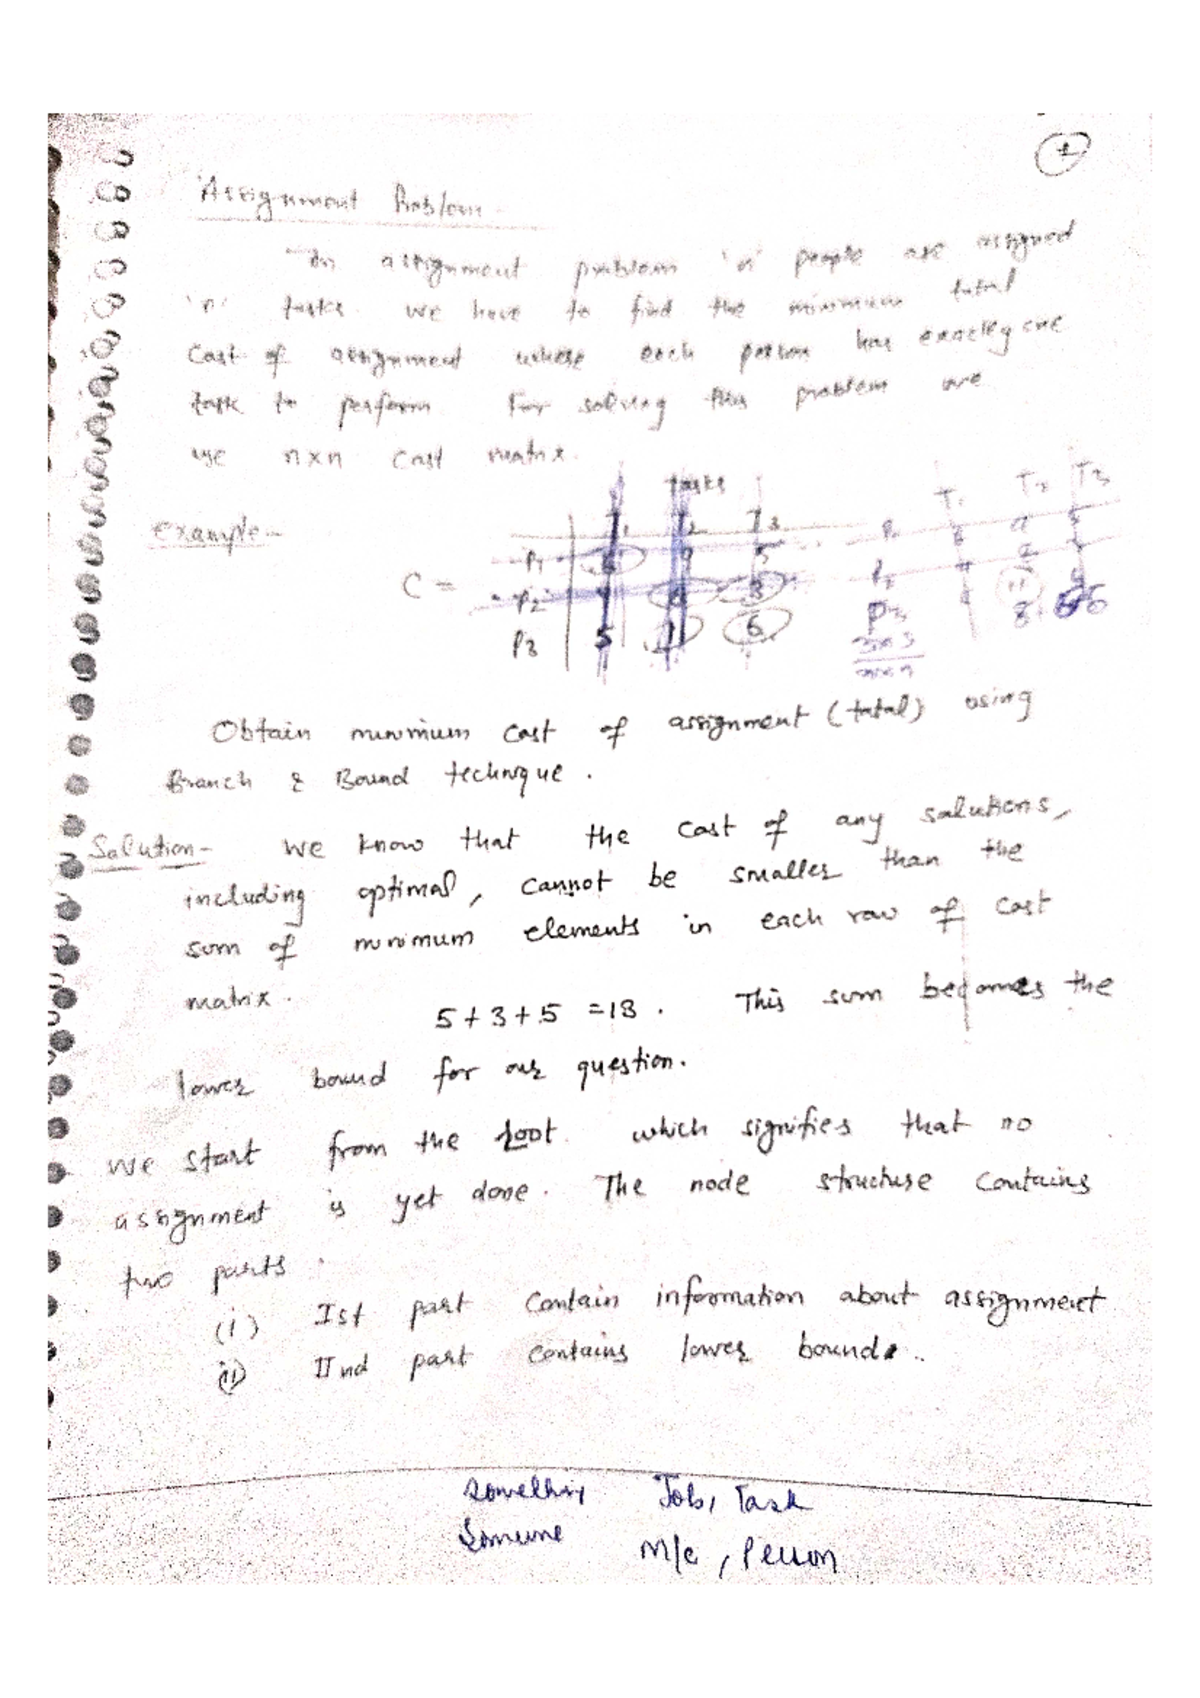 1
Assignment Problem -
In assignment problem 'n' people are assigned
'n' tasks. We have to find the minimum total
cost of assignment where each person has exactly one
task to perform. For solving this problem we
use n×n cost matrix.
Tasks
T1 T2 T3
T1 T2 T3
example -
P1
5
C =
P2
3
P3 5 6
P3 8
3×3
Obtain minimum cost of assignment (total) using
Branch & Bound technique.
Solution - We know that the cost of any solutions,
including optimal, cannot be smaller than the
sum of minimum elements in each row of cost
matrix.
5 + 3 + 5 = 13. This sum becomes the
lower bound for our question.
We start from the root which signifies that no
assignment is yet done. The node structure contains
two parts.
(i) Ist part contain information about assignment
(ii) IInd part contains lower bound.
Something Job, Task
Someone M/c, Person